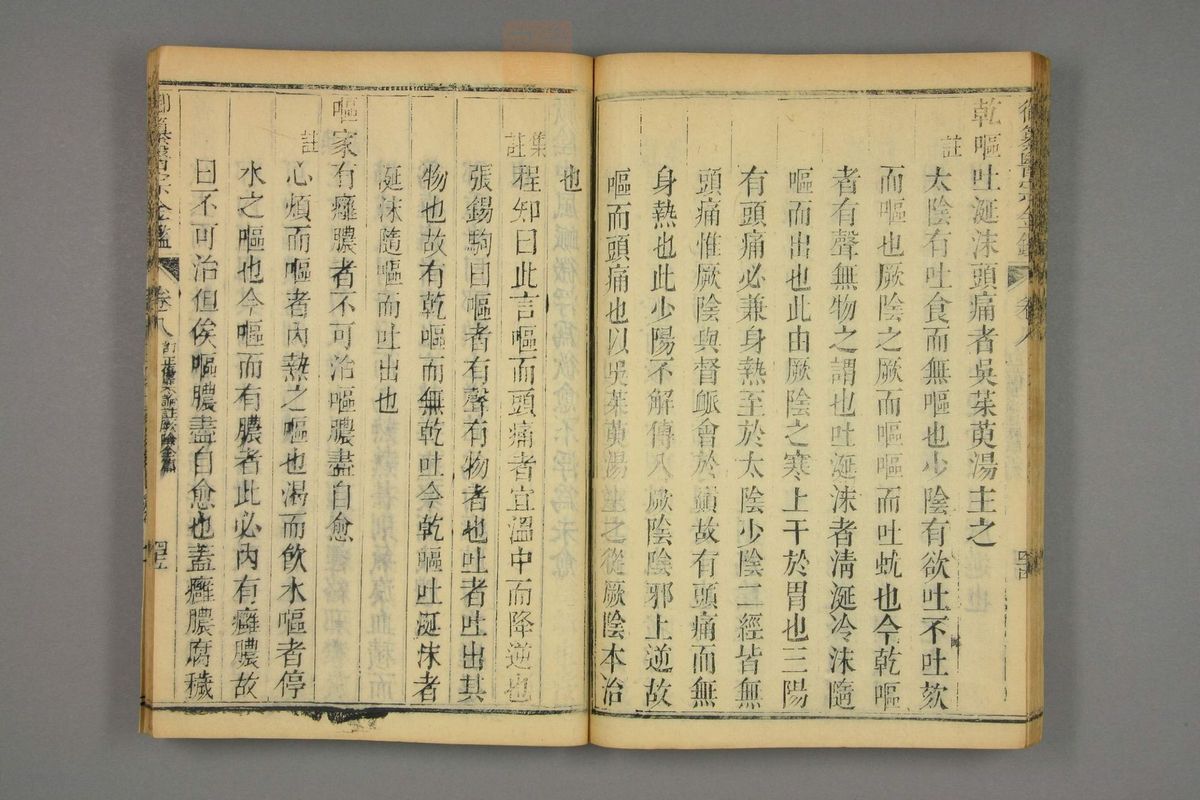 乾嘔吐涎沫頭痛者吳茱萸湯主之
註
太陰有吐食而無嘔也少陰有欲吐不吐欬
而嘔也厥陰之厥而嘔嘔而吐蚘也今乾嘔
者有聲無物之謂也吐涎沫者清涎冷沫隨
嘔而出也此由厥陰之寒上干於胃也三陽
有頭痛必兼身熱至於太陰少陰二經皆無
頭痛惟厥陰與督脈會於巔故有頭痛而無
身熱也此少陽不解傳入厥陰陰邪上逆故
嘔而頭痛也以吳茱萸湯主之從厥陰本治
也
集註
程知曰此言嘔而頭痛者宜溫中而降逆也
張錫駒曰嘔者有聲有物者也吐者吐出其
物也故有乾嘔而無乾吐今乾嘔吐涎沫者
涎沫隨嘔而吐出也
嘔家有癰膿者不可治嘔膿盡自愈
註
心煩而嘔者內熱之嘔也渴而飲水嘔者停
水之嘔也今嘔而有膿者此必內有癰膿故
曰不可治但俟嘔膿盡自愈也蓋癰膿腐穢
御纂醫宗金鑑 卷八